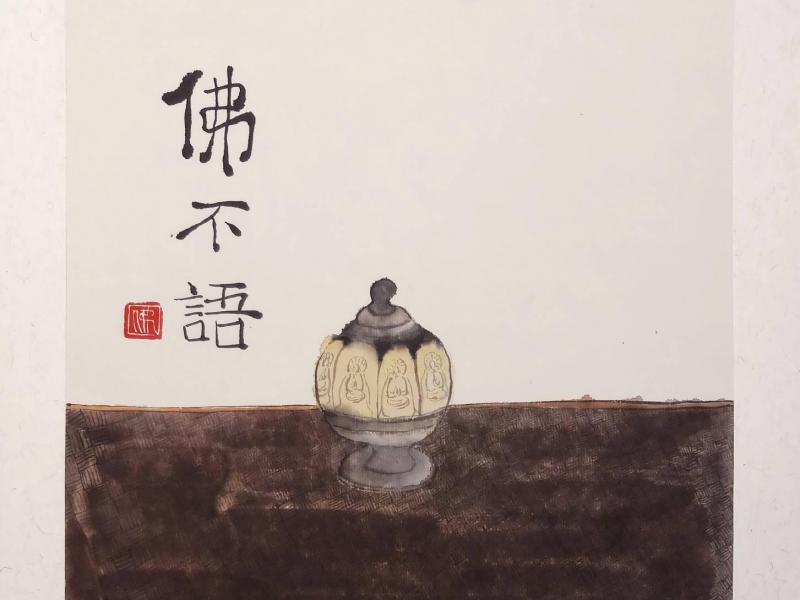 佛不語